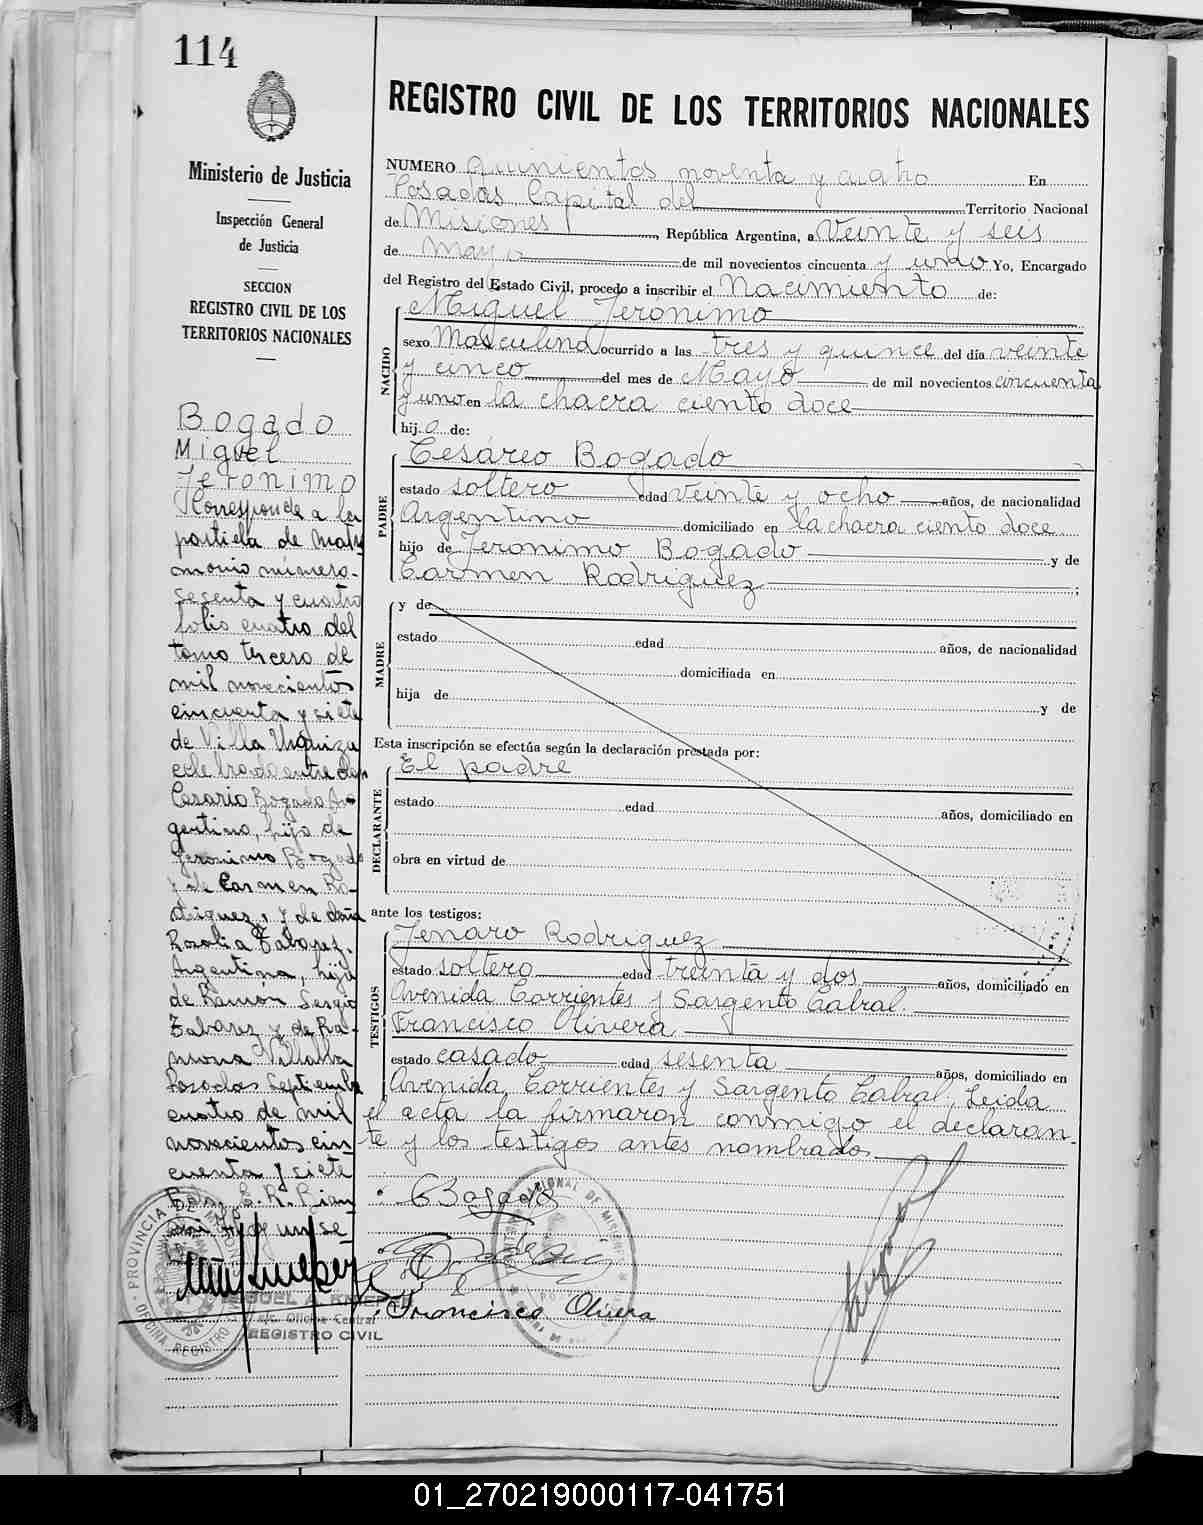 114
Ministerio de Justicia
Inspección General
de Justicia
SECCION
REGISTRO CIVIL DE LOS
TERRITORIOS NACIONALES
Bogado
Miguel
Jeronimo
Corresponde a la
partida de matri
monio número-
sesenta y cuatro
folio cuatro del
tomo tercero de
mil novecientos
cincuenta y siete
de Villa Urquiza
celebrado entre don
Cesario Bogado Ar-
gentino, hijo de
Jeronimo Bogado
y de Carmen Ro-
driguez, y de doña
Rosalia Tabarez,
Argentina, hija
de Ramón Sergio
Tabarez y de Ra-
mona Villalba
Posadas Septiembre
cuatro de mil
novecientos cin
cuenta y siete
REGISTRO CIVIL DE LOS TERRITORIOS NACIONALES
NUMERO quinientos noventa y cuatro En
Posadas Capital del Territorio Nacional
de Misiones, República Argentina, a Veinte y seis
de mayo de mil novecientos cincuenta y uno Yo, Encargado
del Registro del Estado Civil, procedo a inscribir el Nacimiento de:
NACIDO
Miguel Jerónimo
sexo Masculino ocurrido a las tres y quince del día veinte
y cinco del mes de Mayo de mil novecientos cincuenta
y uno en la chacra ciento doce
hijo de:
PADRE
Cesáreo Bogado
estado soltero edad veinte y ocho años, de nacionalidad
Argentino domiciliado en la chacra ciento doce
hijo de Jeronimo Bogado y de
Carmen Rodriguez ;
MADRE
y de
estado edad años, de nacionalidad
domiciliada en
hija de y de
Esta inscripción se efectúa según la declaración prestada por:
DECLARANTE
El padre
estado edad años, domiciliado en
obra en virtud de
ante los testigos:
TESTIGOS
Jenaro Rodriguez
estado soltero edad treinta y dos años, domiciliado en
Avenida Corrientes y Sargento Cabral.
Francisco Olivera
estado casado edad sesenta años, domiciliado en
Avenida Corrientes y Sargento Cabral, Leida
el acta la firmaron conmigo el declaran-
te y los testigos antes nombrados
C Bogado
Francisco Olivera
Oficina Central
REGISTRO CIVIL
01_270219000117-041751